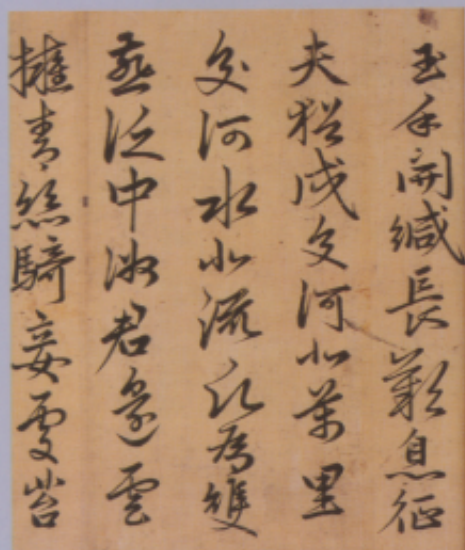 玉手開緘長歎息征
夫猶戍交河北萬里
交河水北流願為雙
燕泛中洲君邊雲
擁青絲騎妾處苔